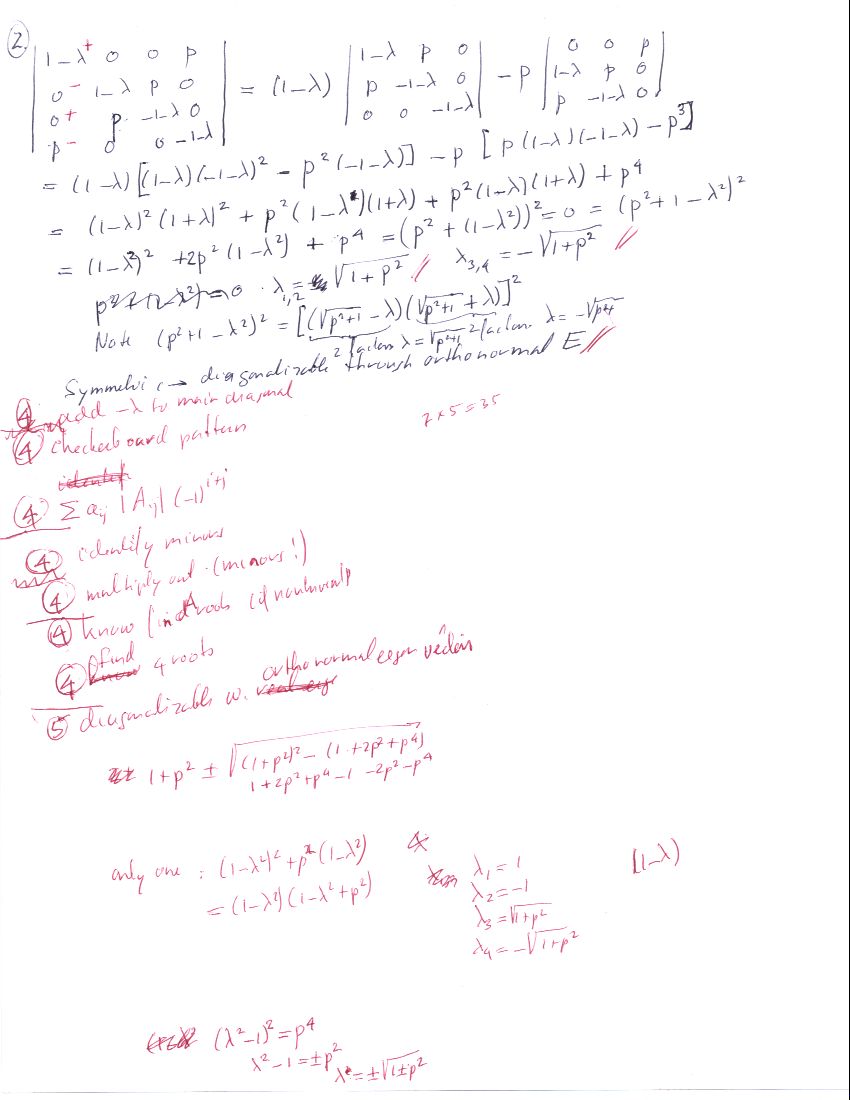 2.
| 1-λ⁺ 0 0 p |
| 0⁻ 1-λ p 0 |
| 0⁺ p -1-λ 0 |
| p⁻ 0 0 -1-λ |
= (1-λ) | 1-λ p 0 | - p | 0 0 p |
| p -1-λ 0 | | 1-λ p 0 |
| 0 0 -1-λ | | p -1-λ 0 |
= (1-λ)[(1-λ)(-1-λ)² - p²(-1-λ)] - p [p(1-λ)(-1-λ) - p³]
= (1-λ)²(1+λ)² + p²(1-λ)(1+λ) + p²(1-λ)(1+λ) + p⁴
= (1-λ²)² + 2p²(1-λ²) + p⁴ = (p² + (1-λ²))² = 0 = (p²+1-λ²)²
p²+(1-λ²)=0 · λ₁,₂ = √1+p² // λ₃,₄ = -√1+p² //
Note (p²+1-λ²)² = [(√p²+1 - λ)(√p²+1 + λ)]²
2 factors λ = √p²+1 2 factors λ = -√p²+1
Symmetric → diagonalizable through orthonormal E //
④ add -λ to main diagonal
7×5=35
④ checkerboard pattern
identif
④ Σ aᵢⱼ |Aᵢⱼ| (-1)ⁱ⁺ʲ
④ identify minors
④ multiply out (minors!)
④ know find 4 roots (if nontrivial)
④ find 4 roots
⑤ diagonalizable w. orthonormal eigen vectors
1+p² ± √(1+p²)² - (1+2p²+p⁴)
1+2p²+p⁴-1-2p²-p⁴
only one : (1-λ²)² + p²(1-λ²)
= (1-λ²)(1-λ²+p²)
λ₁ = 1
λ₂ = -1
λ₃ = √1+p²
λ₄ = -√1+p²
(1-λ)
(λ²-1)² = p⁴
λ²-1 = ±p²
λ = ±√1±p²